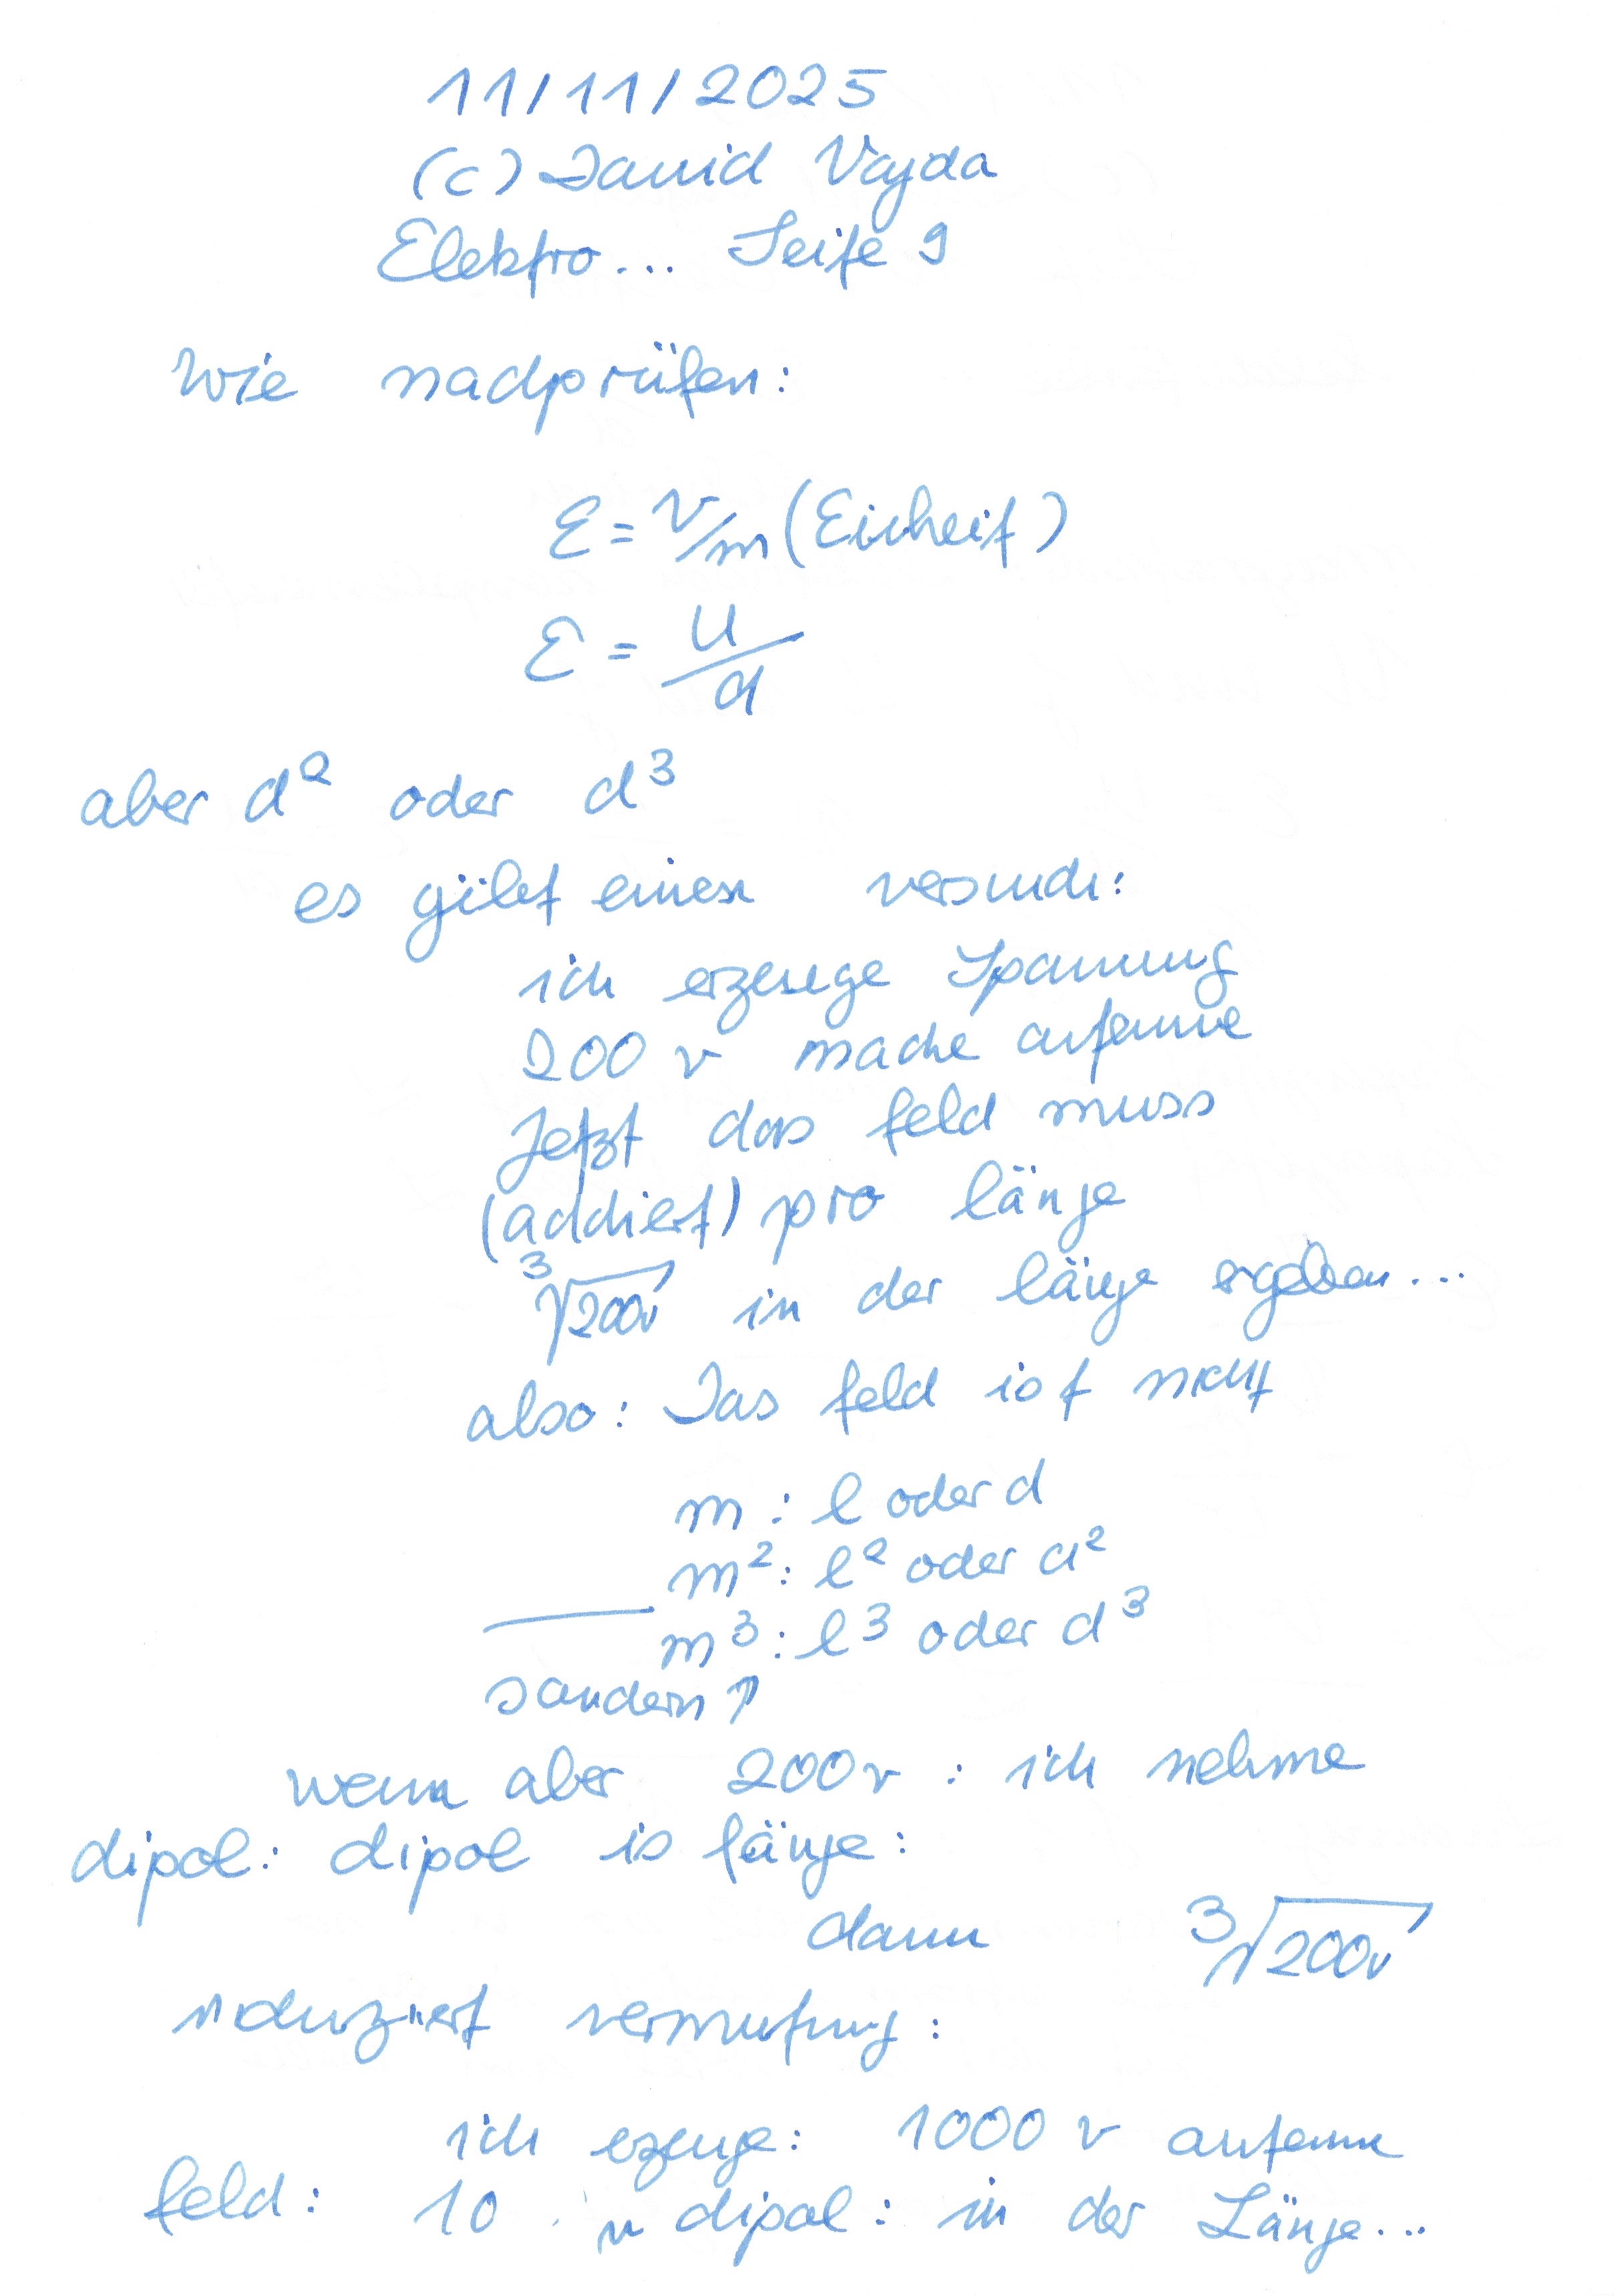 11/11/2025
(c) David Vajda
Elektro... Seite 9
Wie nachprüfen:
E = V/m (Eicheit)
E = U/d
aber d² oder d³
es gibt einen versuch:
ich erzeuge Spannung
200 v mache antenne
Jetzt das feld muss
(addiert) pro länge
³√200v in der länge ergeben...
also: Das feld ist nicht
m : l oder d
m² : l² oder d²
m³ : l³ oder d³
sondern ↑
wenn aber 200v : ich nehme
dipol: dipol is länge:
dann ³√200v
induziert vermutung:
ich ezeuge: 1000 v antenne
feld: 10 v dipol: in der Länge...